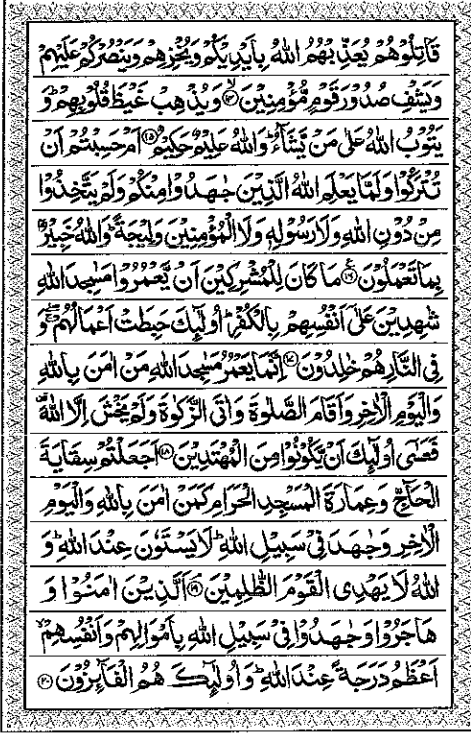 قَاتِلُوْهُمْ يُعَذِّبْهُمُ اللّٰهُ بِاَيْدِيْكُمْ وَيُخْزِهِمْ وَيَنْصُرْكُمْ عَلَيْهِمْ
وَيَشْفِ صُدُوْرَ قَوْمٍ مُّؤْمِنِيْنَ ﴿۱۴﴾ وَيُذْهِبْ غَيْظَ قُلُوْبِهِمْ ؕ وَ
يَتُوْبُ اللّٰهُ عَلٰى مَنْ يَّشَآءُ ؕ وَاللّٰهُ عَلِيْمٌ حَكِيْمٌ ﴿۱۵﴾ اَمْ حَسِبْتُمْ اَنْ
تُتْرَكُوْا وَلَمَّا يَعْلَمِ اللّٰهُ الَّذِيْنَ جٰهَدُوْا مِنْكُمْ وَلَمْ يَتَّخِذُوْا
مِنْ دُوْنِ اللّٰهِ وَلَا رَسُوْلِهٖ وَلَا الْمُؤْمِنِيْنَ وَلِيْجَةً ؕ وَاللّٰهُ خَبِيْرٌۢ
بِمَا تَعْمَلُوْنَ ﴿۱۶﴾ مَا كَانَ لِلْمُشْرِكِيْنَ اَنْ يَّعْمُرُوْا مَسٰجِدَ اللّٰهِ
شٰهِدِيْنَ عَلٰۤى اَنْفُسِهِمْ بِالْكُفْرِ ؕ اُولٰٓئِكَ حَبِطَتْ اَعْمَالُهُمْ ۖۚ وَ
فِى النَّارِ هُمْ خٰلِدُوْنَ ﴿۱۷﴾ اِنَّمَا يَعْمُرُ مَسٰجِدَ اللّٰهِ مَنْ اٰمَنَ بِاللّٰهِ
وَالْيَوْمِ الْاٰخِرِ وَاَقَامَ الصَّلٰوةَ وَاٰتَى الزَّكٰوةَ وَلَمْ يَخْشَ اِلَّا اللّٰهَ
فَعَسٰٓى اُولٰٓئِكَ اَنْ يَّكُوْنُوْا مِنَ الْمُهْتَدِيْنَ ﴿۱۸﴾ اَجَعَلْتُمْ سِقَايَةَ
الْحَآجِّ وَعِمَارَةَ الْمَسْجِدِ الْحَرَامِ كَمَنْ اٰمَنَ بِاللّٰهِ وَالْيَوْمِ
الْاٰخِرِ وَجٰهَدَ فِىْ سَبِيْلِ اللّٰهِ ؕ لَا يَسْتَوٗنَ عِنْدَ اللّٰهِ ؕ وَ
اللّٰهُ لَا يَهْدِى الْقَوْمَ الظّٰلِمِيْنَ ﴿۱۹﴾ اَلَّذِيْنَ اٰمَنُوْا وَ
هَاجَرُوْا وَجٰهَدُوْا فِىْ سَبِيْلِ اللّٰهِ بِاَمْوَالِهِمْ وَاَنْفُسِهِمْ ۙ
اَعْظَمُ دَرَجَةً عِنْدَ اللّٰهِ ؕ وَاُولٰٓئِكَ هُمُ الْفَآئِزُوْنَ ﴿۲۰﴾